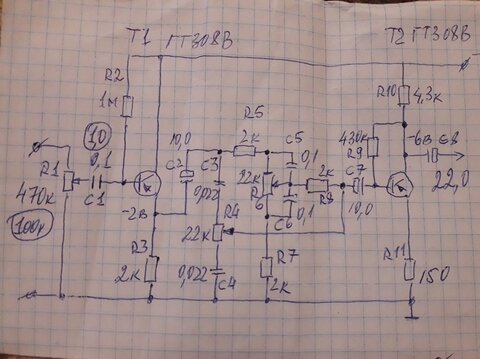 Т1 ГТ308В
Т2 ГТ308В
R2
1м
R10
4,3к
R5
2к
10,0
C2
C3
0,022
C5
0,1
430к
R9
-6в
C8
22,0
10
0,1
C1
R1
470к
100к
-2в
R4
22к
22к
R
6
2к
R8
C7
10,0
0,1
C6
R3
2к
0,022
C4
R7
2к
R11
150